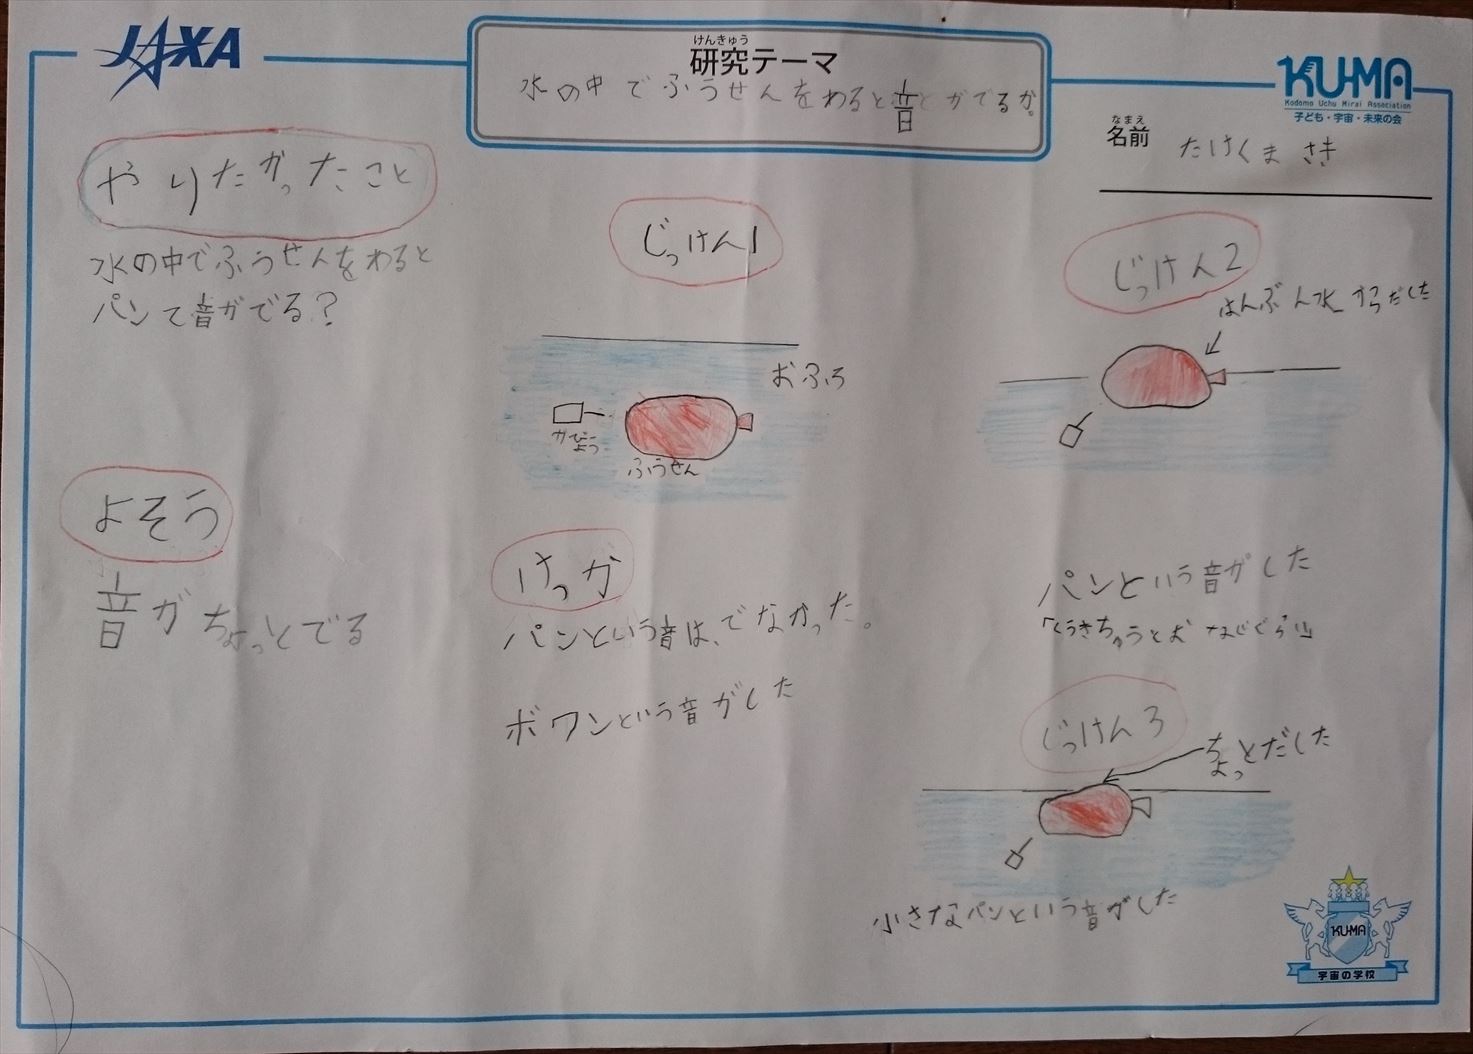 JAXA
けんきゅう
研究テーマ
水の中でふうせんをわると音とがでるか。
KU-MA
Kodomo Uchu Mirai Association
子ども・宇宙・未来の会
なまえ
名前 たけくま さき
やりたかったこと
水の中でふうせんをわると
パンて音がでる？
よそう
音がちょっとでる
じっけん1
おふろ
がびょう
ふうせん
けっか
パンという音は、でなかった。
ボワンという音がした
じっけん2
はんぶん水からだした
パンという音がした
「くうきちゅうとおなじぐらい」
じっけん3
ちょっとだした
小さなパンという音がした
KU-MA
宇宙の学校